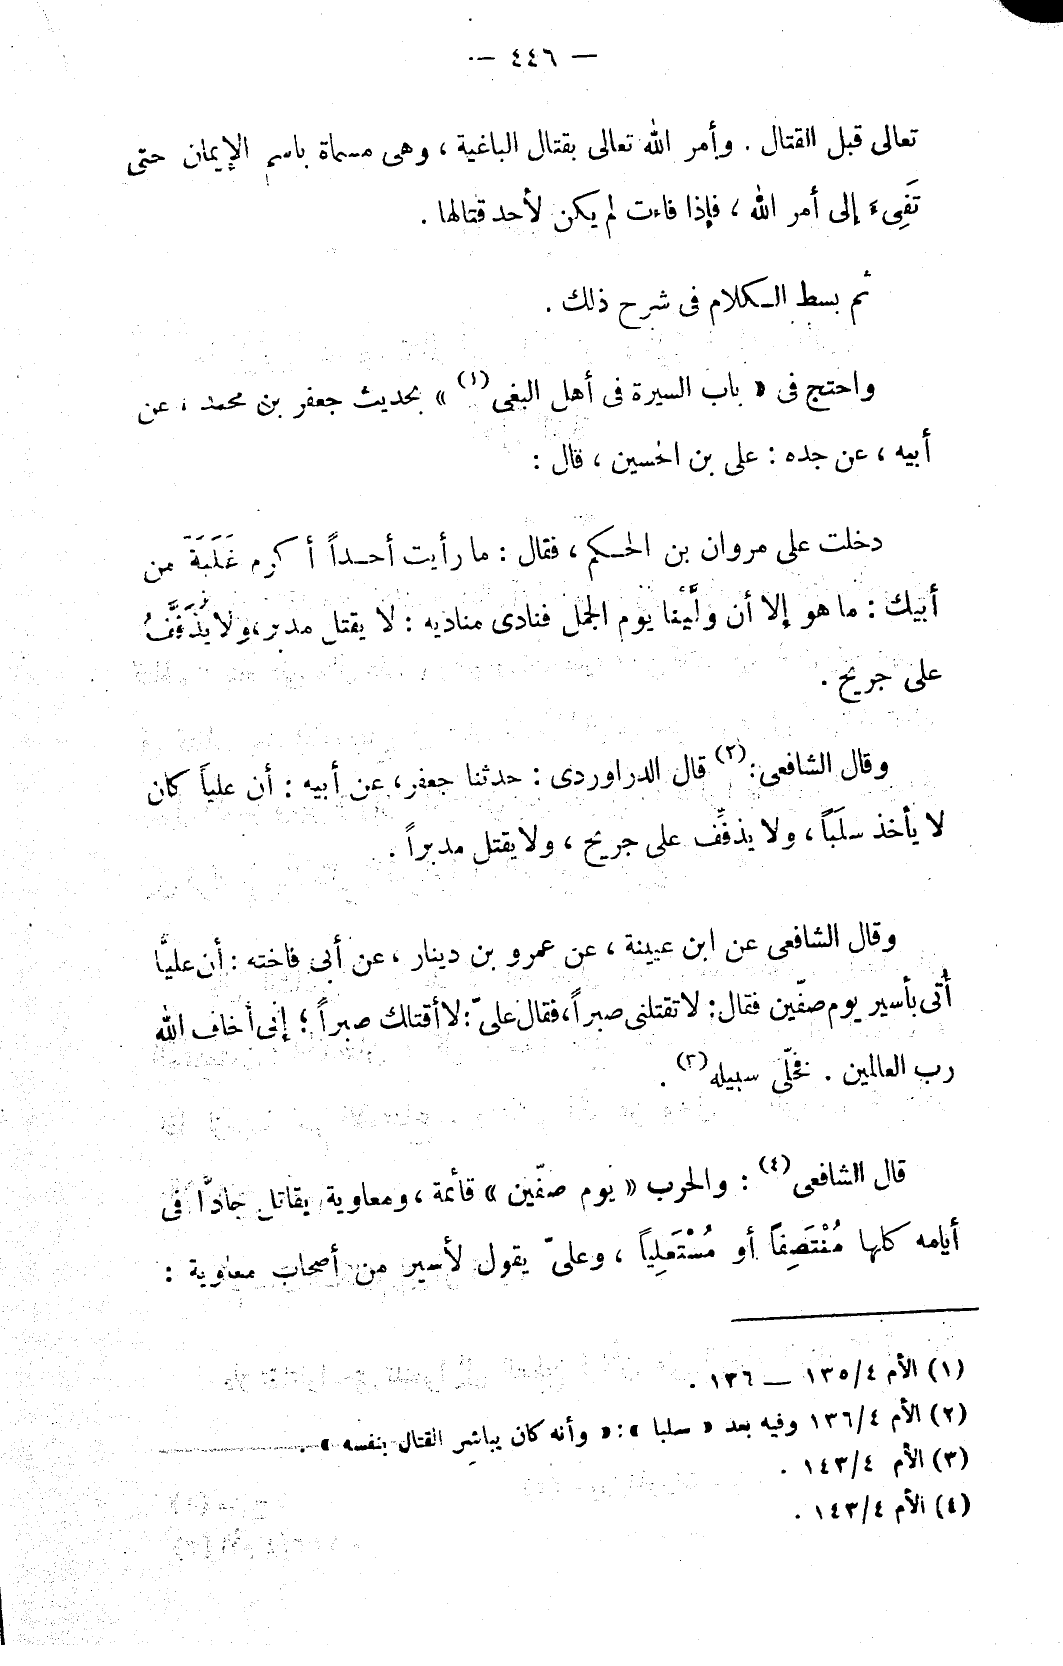 — ٤٤٦ —
تعالى قبل القتال . وأمر الله تعالى بقتال الباغية ، وهى مسماة باسم الإيمان حتى
تَفِىء إلى أمر الله ، فإذا فاءت لم يكن لأحد قتالها .
ثم بسط الـكلام فى شرح ذلك .
واحتج فى « باب السيرة فى أهل البغى (١) » بحديث جعفر بن محمد ، عن
أبيه ، عن جده : على بن الحسين ، قال :
دخلت على مروان بن الحـكم ، فقال : ما رأيت أحـداً أكرم غَلَبَةً من
أبيك : ما هو إلا أن ولَّيْنا يوم الجمل فنادى مناديه : لا يقتل مدبر، ولا يُذَفَّفُ
على جريح .
وقال الشافعى : (٢) قال الدراوردى : حدثنا جعفر، عن أبيه : أن علياً كان
لا يأخذ سلَباً ، ولا يذفِّف على جريح ، ولا يقتل مدبراً .
وقال الشافعى عن ابن عيينة ، عن عمرو بن دينار ، عن أبى فاخته : أن عليًّا
أُتى بأسير يوم صفّين فقال: لا تقتلنى صبراً، فقال علىّ: لا أقتلك صبراً ؛ إنى أخاف الله
رب العالمين . فخلّى سبيله (٣) .
قال الشافعى (٤) : والحرب « يوم صفّين » قائمة ، ومعاوية يقاتل جادًّا فى
أيامه كلها مُنْتَصِفاً أو مُسْتَعلِياً ، وعلىّ يقول لأسير من أصحاب معاوية :
(١) الأم ٤/١٣٥ — ١٣٦ .
(٢) الأم ٤/١٣٦ وفيه بعد « سلبا » : « وأنه كان يباشر القتال بنفسه » .
(٣) الأم ٤/١٤٣ .
(٤) الأم ٤/١٤٣ .